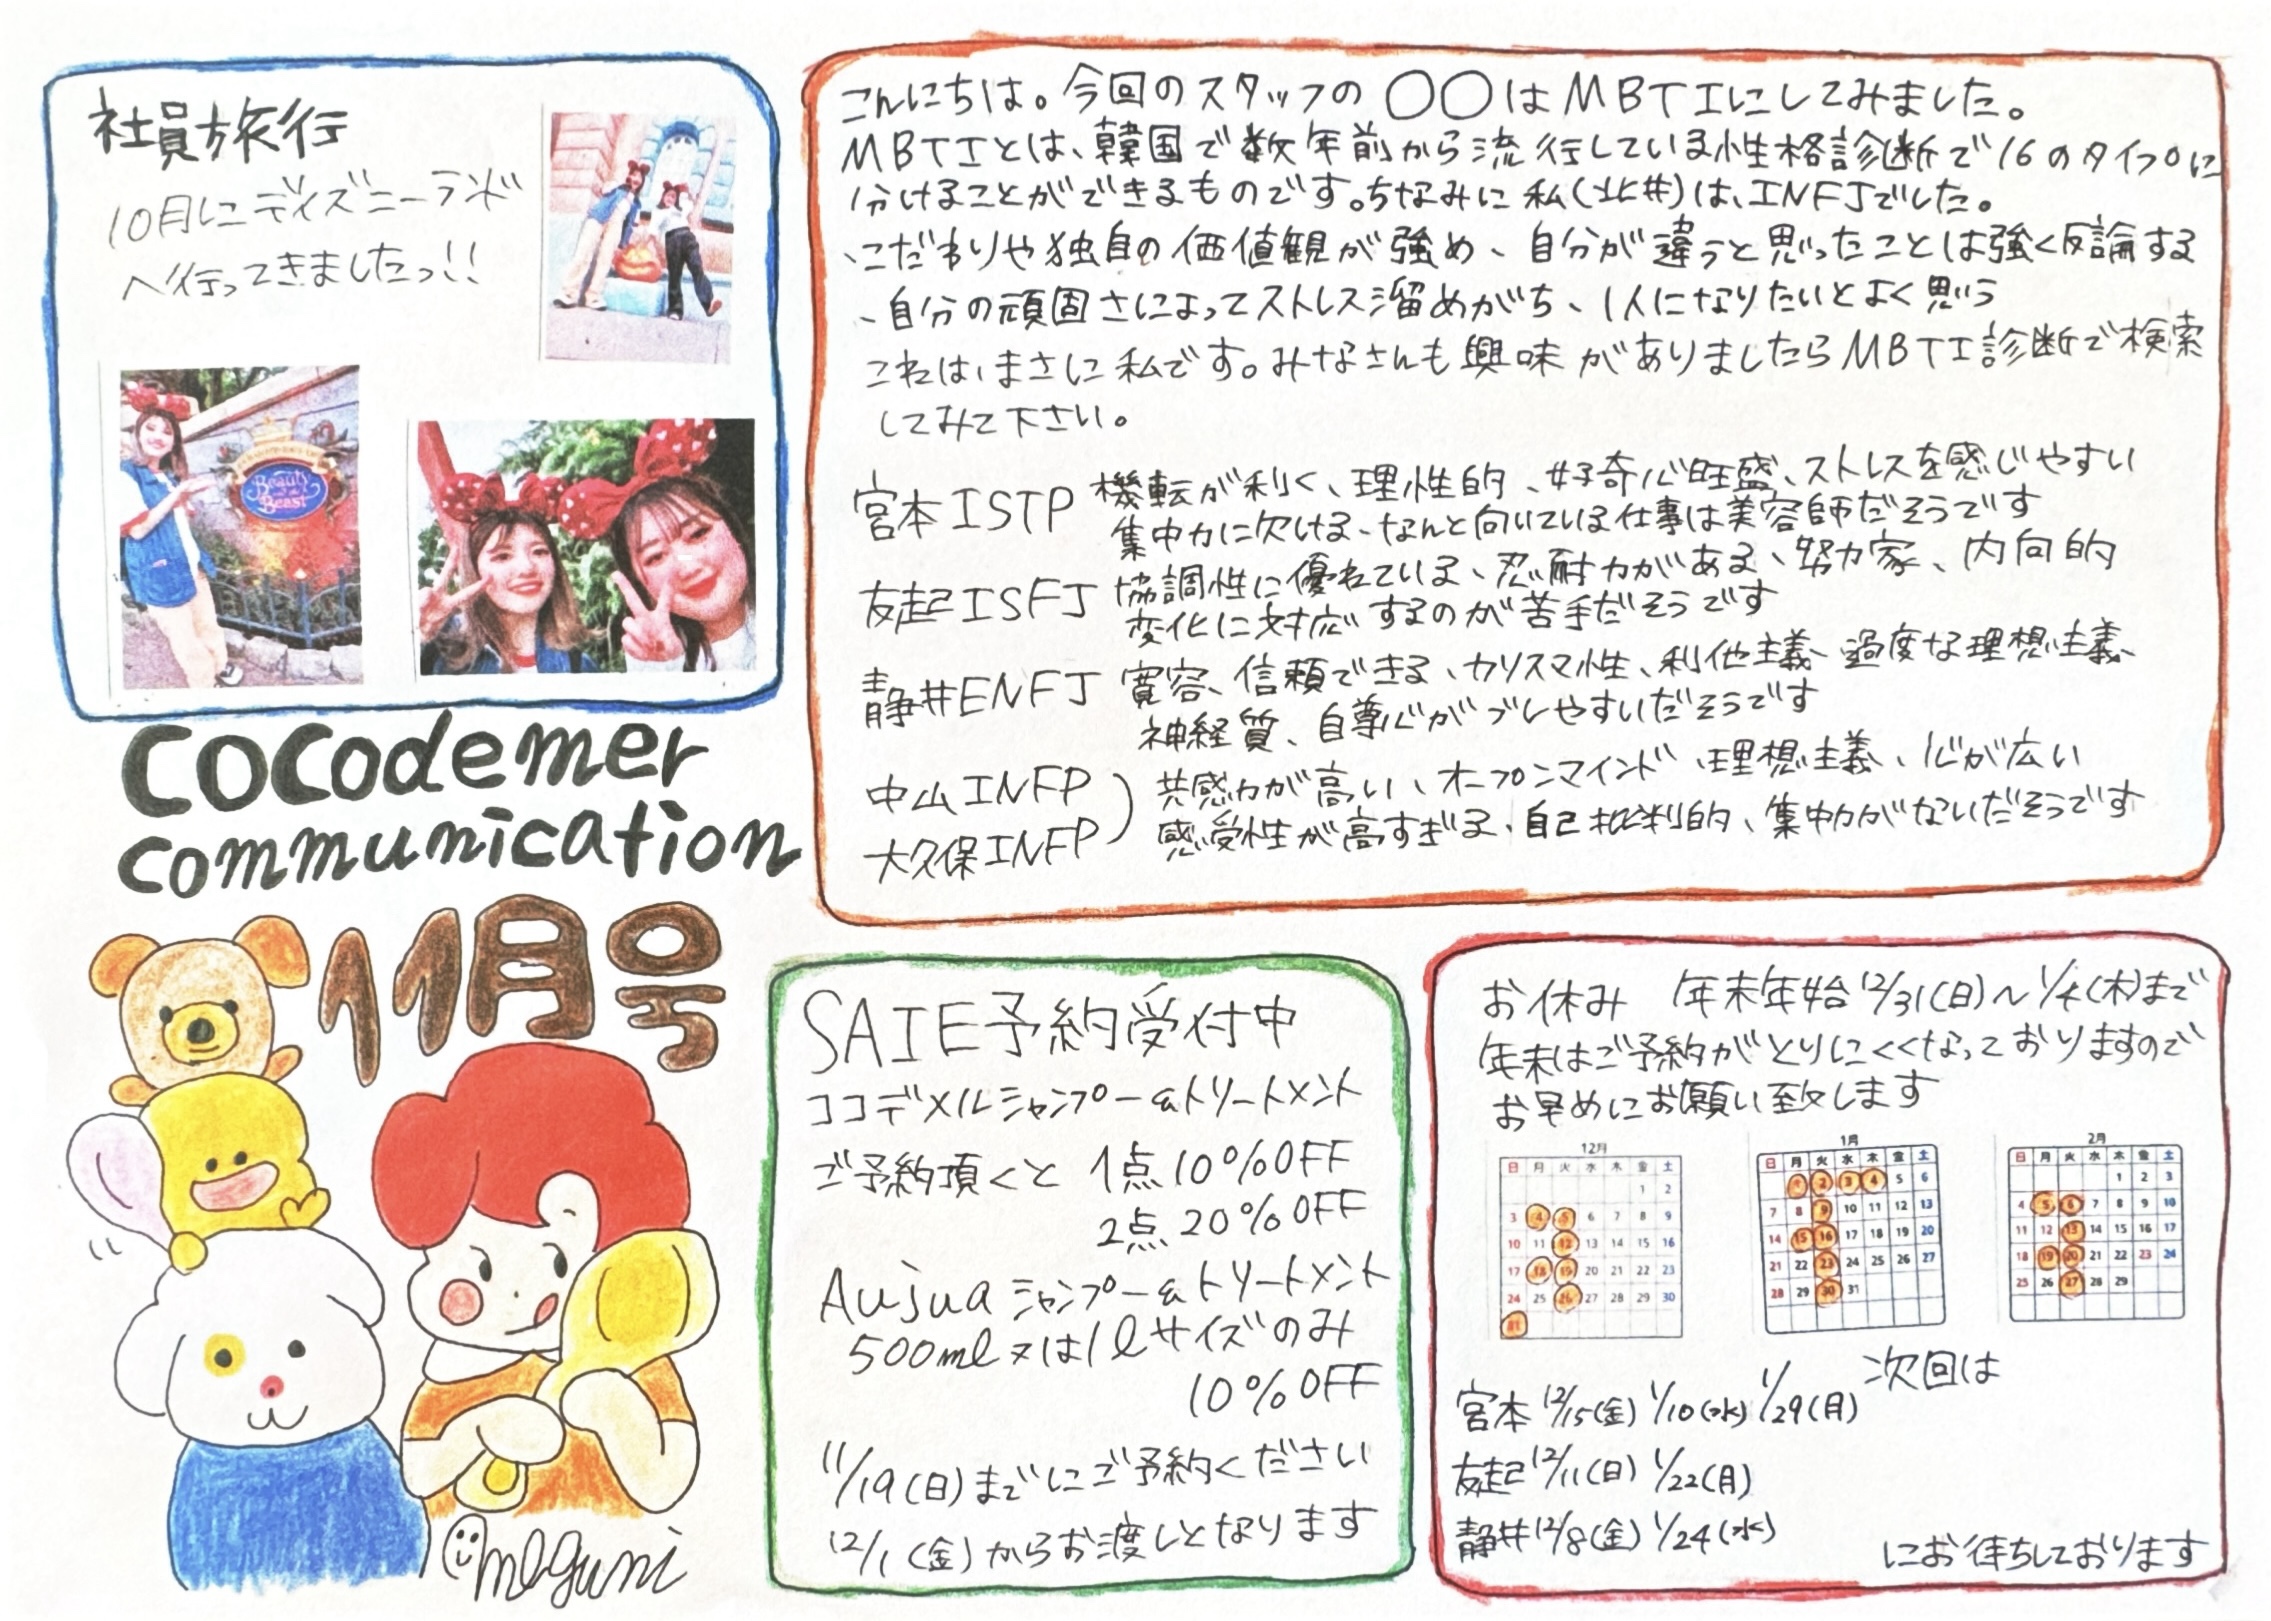 社員旅行
10月にディズニーランド
へ行ってきましたっ!!
Beauty and the Beast
cocodemer
communication
11月号
meguni
こんにちは。今回のスタッフの〇〇はMBTIにしてみました。
MBTIとは、韓国で数年前から流行している性格診断で16のタイプに
分けることができるものです。ちなみに私(北井)は、INFJでした。
、こだわりや独自の価値観が強め、自分が違うと思ったことは強く反論する
、自分の頑固さによってストレス溜めがち、1人になりたいとよく思う
これは、まさに私です。みなさんも興味がありましたらMBTI診断で検索
してみて下さい。
宮本ISTP 機転が利く、理性的、好奇心旺盛、ストレスを感じやすい
集中力に欠ける、なんと向いている仕事は美容師だそうです
友起ISFJ 協調性に優れている、忍耐力がある、努力家、内向的
変化に対応するのが苦手だそうです
静井ENFJ 寛容、信頼できる、カリスマ性、利他主義、過度な理想主義、
神経質、自尊心がブレやすいだそうです
中山INFP 共感力が高い、オープンマインド、理想主義、心が広い
大久保INFP 感受性が高すぎる、自己批判的、集中力がないだそうです
SAIE予約受付中
ココデメルシャンプー&トリートメント
ご予約頂くと 1点10%OFF
2点20%OFF
Aujuaシャンプー&トリートメント
500ml又は1lサイズのみ
10%OFF
11/19(日)までにご予約ください
12/1(金)からお渡しとなります
お休み 年末年始12/31(日)~1/4(木)まで
年末はご予約がとりにくくなっておりますので
お早めにお願い致します
12月
日 月 火 水 木 金 土
1 2
3 4 5 6 7 8 9
10 11 12 13 14 15 16
17 18 19 20 21 22 23
24 25 26 27 28 29 30
31
1月
日 月 火 水 木 金 土
1 2 3 4 5 6
7 8 9 10 11 12 13
14 15 16 17 18 19 20
21 22 23 24 25 26 27
28 29 30 31
2月
日 月 火 水 木 金 土
1 2 3
4 5 6 7 8 9 10
11 12 13 14 15 16 17
18 19 20 21 22 23 24
25 26 27 28 29
宮本12/15(金) 1/10(水) 1/29(月) 次回は
友起12/11(日) 1/22(月)
静井12/8(金) 1/24(水)
にお待ちしております